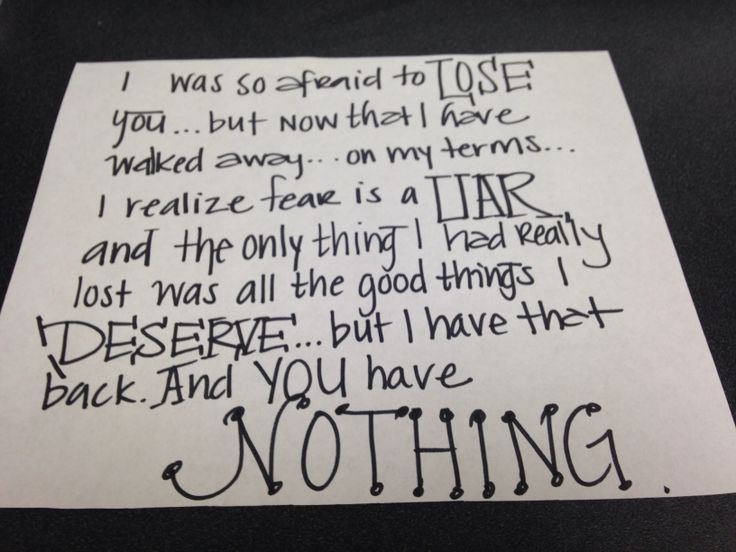 I was so afraid to LOSE
you...but now that I have
walked away... on my terms...
I realize fear is a LIAR,
and the only thing I had Really
lost was all the good things I
DESERVE...but I have that
back. And YOU have
NOTHING.